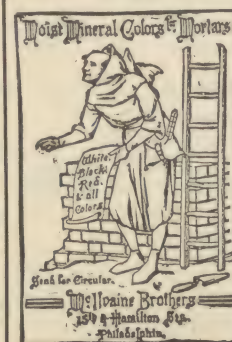 Moist Mineral Colors for Mortars
White,
Black,
Red,
& all
Colors
Send for Circular.
McIlvaine Brothers
15th & Hamilton Sts.
Philadelphia.